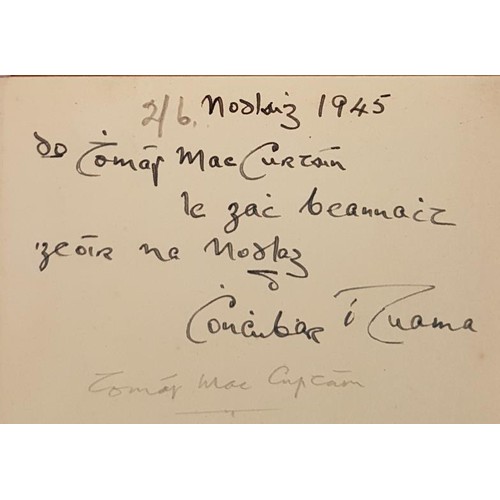 2/6. Nodlaig 1945
do Ṫomás Mac Curtáin
le gaċ beannaċt
na Nodlag
ó
Ċonċuḃar í Ṫuama
Tomás Mac Curtáin